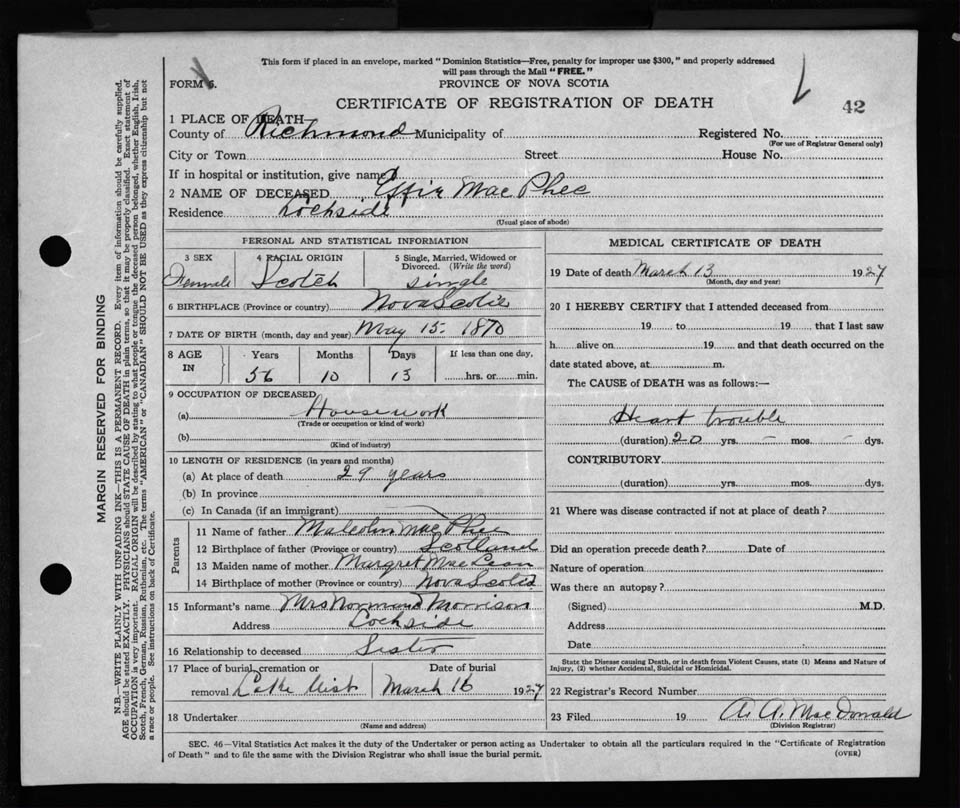 This form if placed in an envelope, marked "Dominion Statistics—Free, penalty for improper use $300," and properly addressed
will pass through the Mail "FREE."
FORM 6.
PROVINCE OF NOVA SCOTIA
CERTIFICATE OF REGISTRATION OF DEATH
42
1 PLACE OF DEATH
County of Richmond Municipality of Registered No.
(For use of Registrar General only)
City or Town Street House No.
If in hospital or institution, give name
2 NAME OF DECEASED Effie Mac Phee
Residence Lochside
(Usual place of abode)
PERSONAL AND STATISTICAL INFORMATION
3 SEX 4 RACIAL ORIGIN 5 Single, Married, Widowed or
Divorced. (Write the word)
Female Scotch single
6 BIRTHPLACE (Province or country) Nova Scotia
7 DATE OF BIRTH (month, day and year) May 15. 1870
8 AGE Years Months Days If less than one day,
IN 56 10 13 hrs. or min.
9 OCCUPATION OF DECEASED
(a) Housework
(Trade or occupation or kind of work)
(b)
(Kind of industry)
10 LENGTH OF RESIDENCE (in years and months)
(a) At place of death 29 years
(b) In province
(c) In Canada (if an immigrant)
Parents
11 Name of father Malcolm Mac Phee
12 Birthplace of father (Province or country) Scotland
13 Maiden name of mother Margret Mac Lean
14 Birthplace of mother (Province or country) Nova Scotia
15 Informant's name Mrs Norman Morrison
Address Lochside
16 Relationship to deceased Sister
17 Place of burial, cremation or Date of burial
removal March 16 1927
18 Undertaker
(Name and address)
MEDICAL CERTIFICATE OF DEATH
19 Date of death March 13 1927
(Month, day and year)
20 I HEREBY CERTIFY that I attended deceased from
19 to 19 that I last saw
h alive on 19 and that death occurred on the
date stated above, at m.
The CAUSE of DEATH was as follows:—
Heart trouble
(duration) 20 yrs. - mos. - dys.
CONTRIBUTORY
(duration) yrs. mos. dys.
21 Where was disease contracted if not at place of death?
Did an operation precede death? Date of
Nature of operation
Was there an autopsy?
(Signed) M.D.
Address
Date
State the Disease causing Death, or in death from Violent Causes, state (1) Means and Nature of
Injury, (2) whether Accidental, Suicidal or Homicidal.
22 Registrar's Record Number
23 Filed 19 A. A. Mac Donald
(Division Registrar)
SEC. 46—Vital Statistics Act makes it the duty of the Undertaker or person acting as Undertaker to obtain all the particulars required in the "Certificate of Registration
of Death" and to file the same with the Division Registrar who shall issue the burial permit.
(OVER)
MARGIN RESERVED FOR BINDING
N.B.—WRITE PLAINLY WITH UNFADING INK—THIS IS A PERMANENT RECORD. Every item of information should be carefully supplied.
AGE should be stated EXACTLY. PHYSICIANS should STATE CAUSE OF DEATH in plain terms, so that it may be properly classified. Exact statement of
OCCUPATION is very important. RACIAL ORIGIN will be described by stating to what people or tongue the deceased person belonged, whether English, Irish,
Scotch, French, German, Russian, Ruthenian, etc. The terms "AMERICAN" or "CANADIAN" SHOULD NOT BE USED as they express citizenship but not
a race or people. See instructions on back of Certificate.